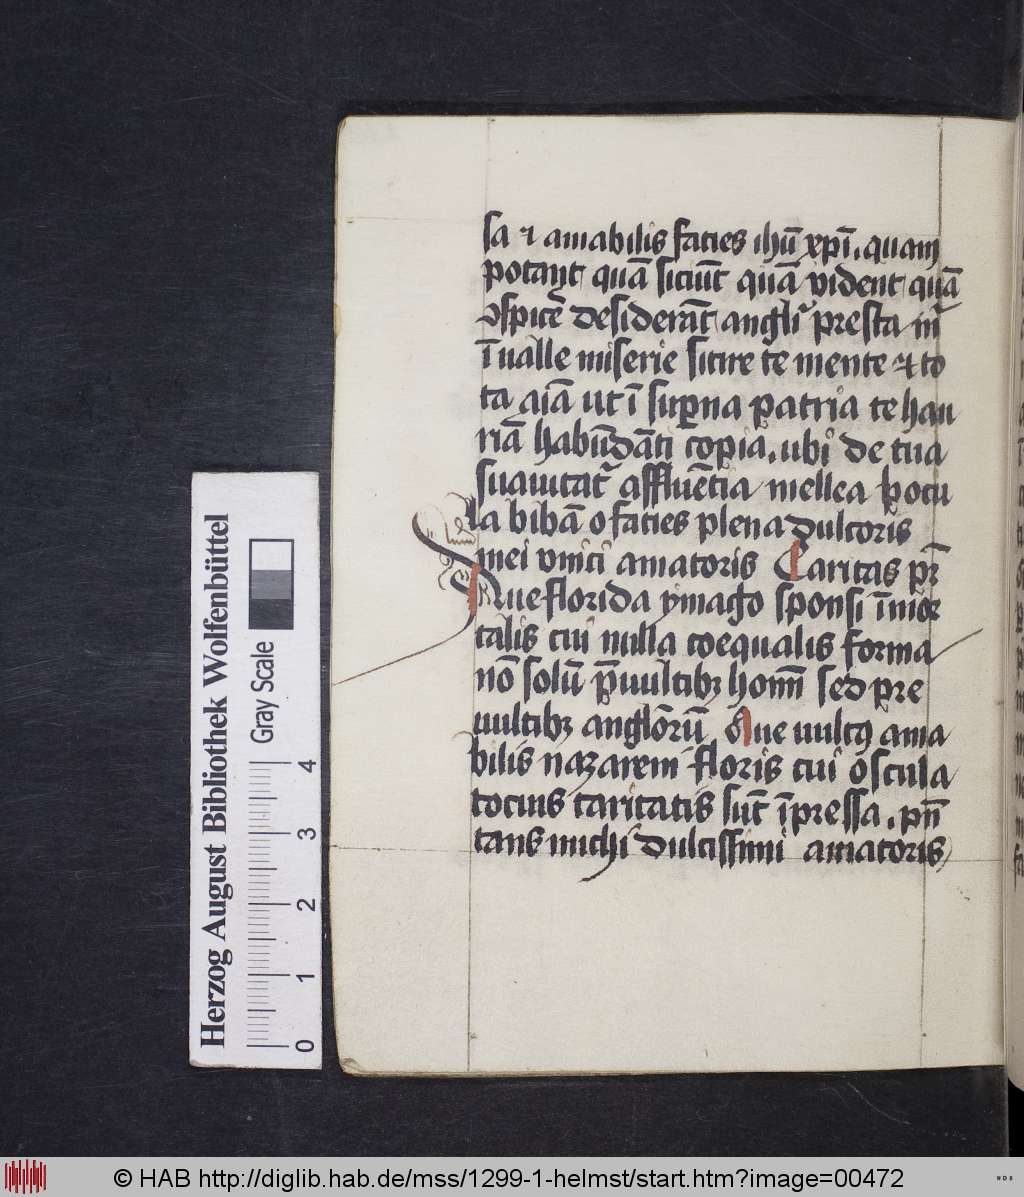 sa ⁊ amabilis facies ihū xp̄i. quam
potant quā siciūt quā vident quā
ꝯspicē desiderāt angli presta m̄
ī ualle miserie sitire te mente ⁊ to
ta aīa ut ī suꝑna patria te hau
riā habūdāti copia. ubi de tua
suauitat̄ affluētia mellea pocu
la bibā o facies plena dulcoris
mei vnici amatoris Caritas pr̄
Aue florida ymago sponsi īmor
talis cui nulla coequalis forma
nō solū p̄ uultibꝫ hom̄ sed pre
uultibꝫ anglōrū Aue uultꝰ ama
bilis nazareni floris cui oscula
tocius caritatis sūt īpressa. p̄n
tans michi dulcissimi amatoris
Herzog August Bibliothek Wolfenbüttel
Gray Scale
0 1 2 3 4
© HAB http://diglib.hab.de/mss/1299-1-helmst/start.htm?image=00472